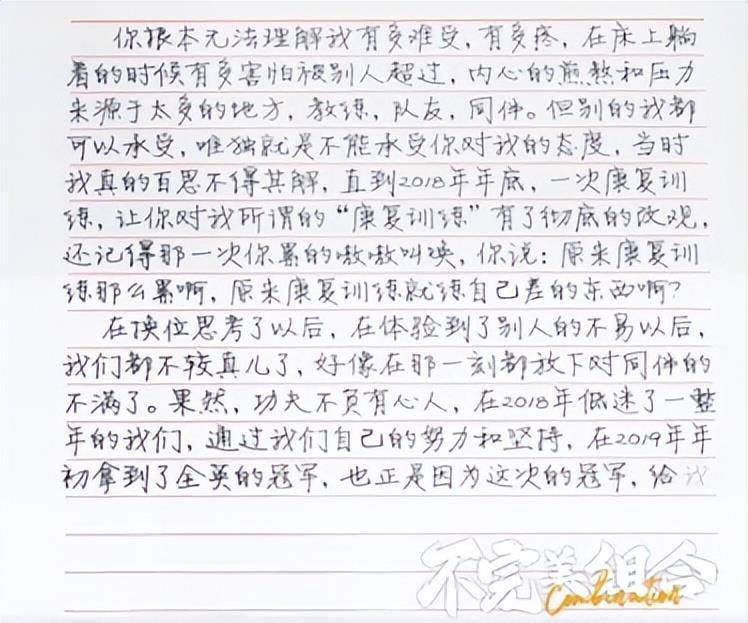 你根本无法理解我有多难受，有多疼，在床上躺
着的时候有多害怕被别人超过，内心的煎熬和压力
来源于太多的地方，教练，队友，同伴。但别的我都
可以承受，唯独就是不能承受你对我的态度，当时
我真的百思不得其解，直到2018年年底，一次康复训
练，让你对我所谓的“康复训练”有了彻底的改观，
还记得那一次你累的嗷嗷叫唤，你说：原来康复训
练那么累啊，原来康复训练就练自己差的东西啊？
在换位思考了以后，在体验到了别人的不易以后，
我们都不较真儿了，好像在那一刻都放下对同伴的
不满了。果然，功夫不负有心人，在2018年低迷了一整
年的我们，通过我们自己的努力和坚持，在2019年年
初拿到了全英的冠军，也正是因为这次的冠军，给我
不完美组合
Combination